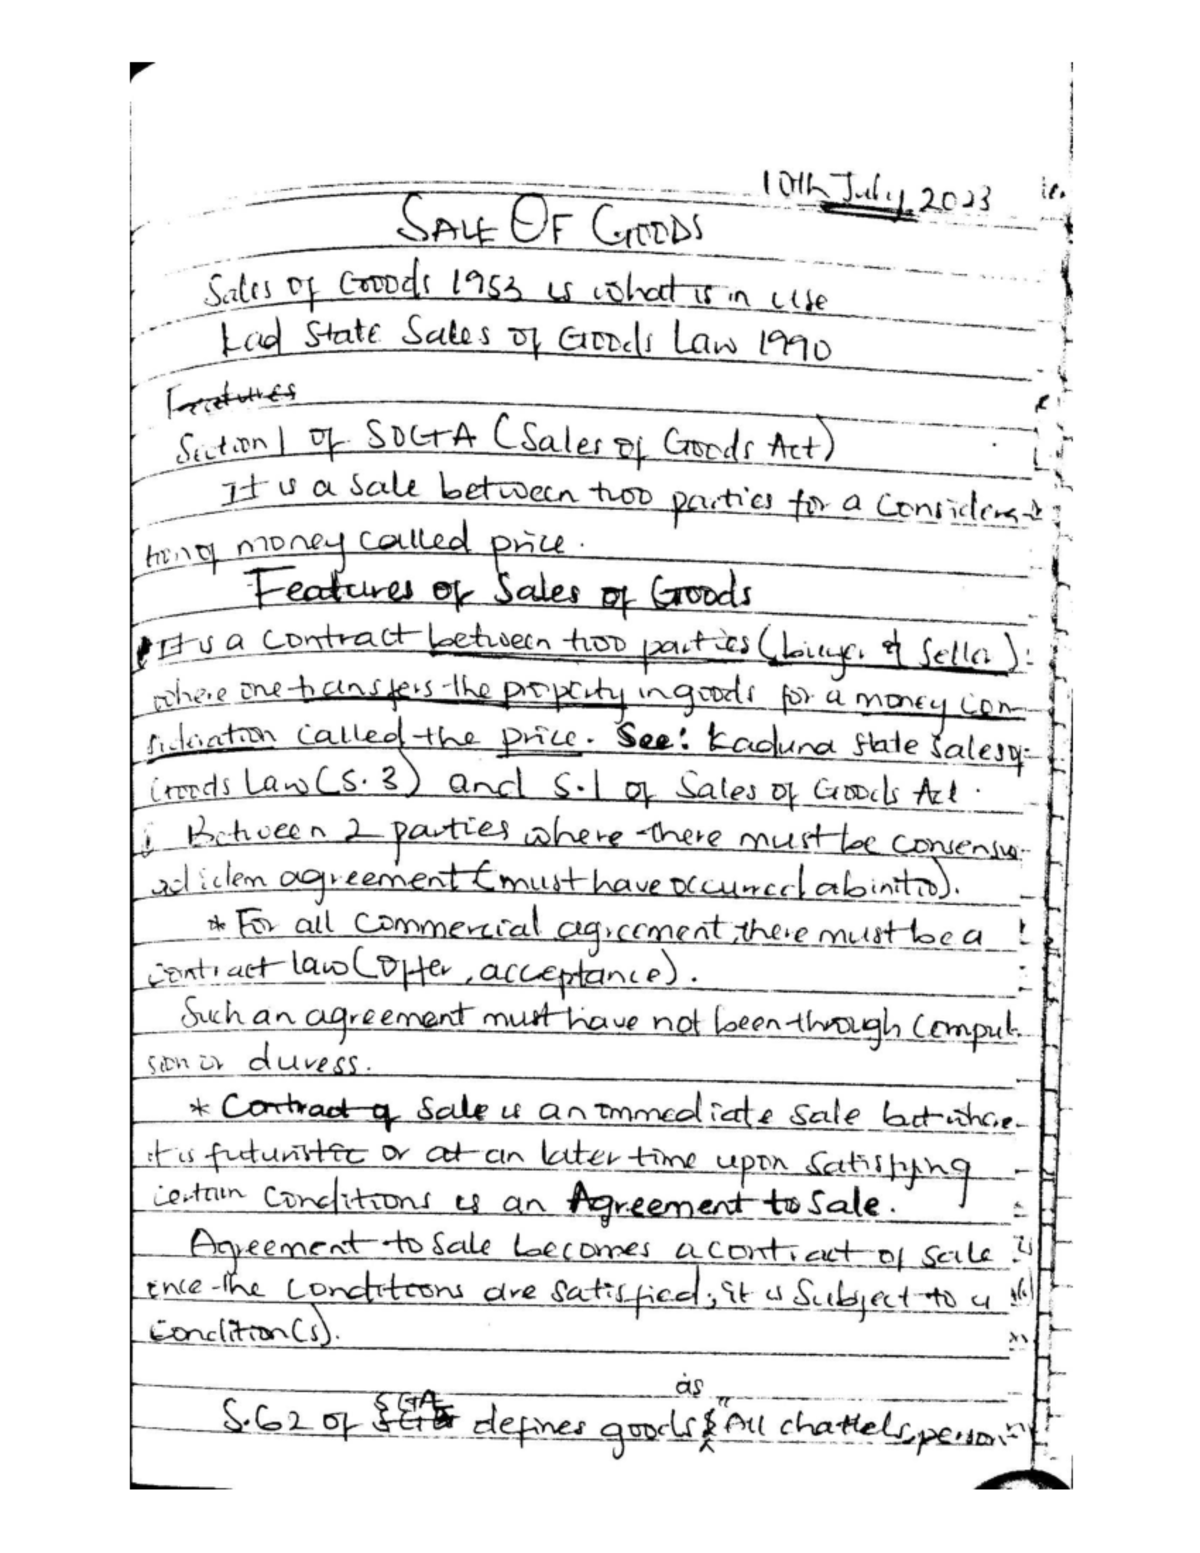 10th July, 2023
SALE OF GOODS
Sales of Goods 1953 is what is in use
Kad State Sales of Goods Law 1990
Features
Section 1 of SOGA (Sales of Goods Act)
It is a sale between two parties for a considera-
tion of money called price.
Features of Sales of Goods
It is a contract between two parties (buyer & Seller)
where one transfers the property in goods for a money con-
sideration called the price. See: Kaduna State Sales of
Goods Law (S. 3) and S.1 of Sales of Goods Act.
i Between 2 parties where there must be consensus
ad idem agreement (must have occurred abinitio).
* For all commercial agreement, there must be a
contract law (Offer, acceptance).
Such an agreement must have not been through compul-
sion or duress.
* Contract of Sale is an immediate sale but where
it is futuristic or at an later time upon satisfying
certain conditions is an Agreement to Sale.
Agreement to Sale becomes a contract of sale
once the conditions are satisfied; it is Subject to a
condition(s).
as
S.62 of SGA defines goods "All chattels, person